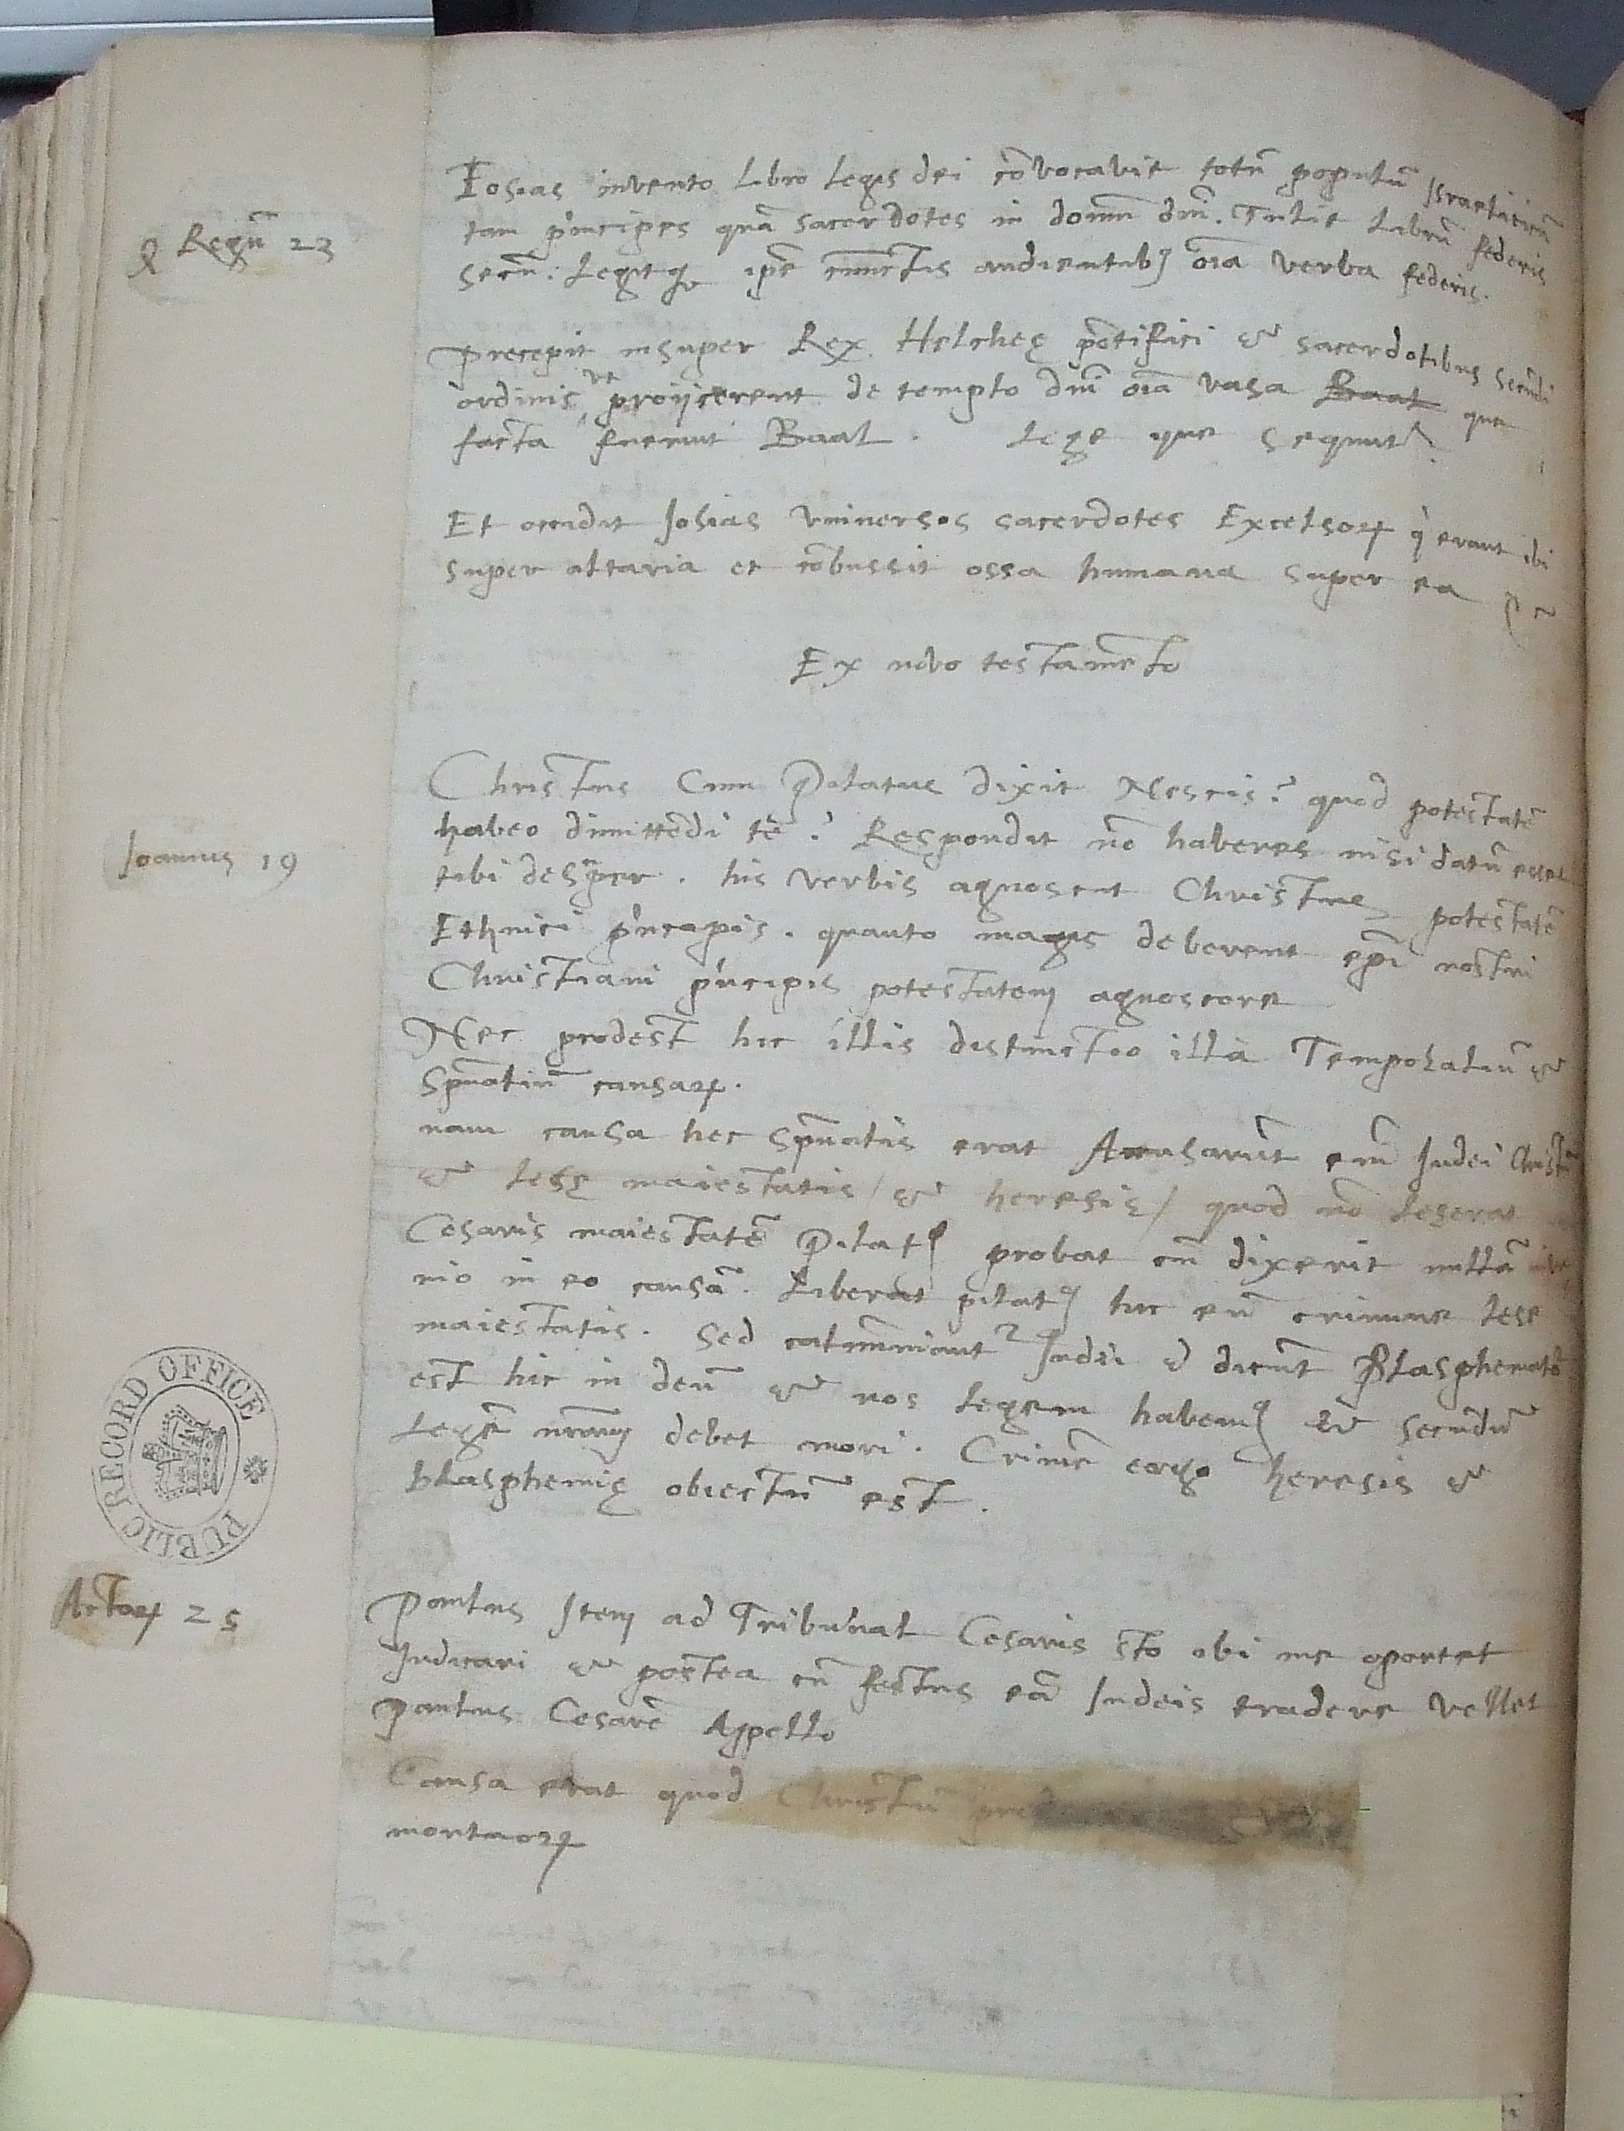 Iosias invento libro legis dei cōvocavit totū populū Israeliticū
4 Regū 23
tam principes quā sacerdotes in domū dnī. Tulit librū federis
secū. Legitqꝫ ipē cunctis audientibꝫ oīa verba federis.
Precepit insuper Rex Helcheę pōtifici & sacerdotibus secūdi
ordinis vt proijcerent de templo dnī oīa vasa Baal que
facta fuerunt Baal. Lege que sequūtr
Et occidit Iosias vniversos sacerdotes Excelsoꝝ qi erant ibi
super altaria et cōbussit ossa humana super ea
Ex novo testamēto
Christus Cum Pilatus dixit Nescis? quod potestatē
habeo dimittēdi te? Respondit nō haberes nisi datū esset
Ioannis 19
tibi desuper. his verbis agnoscit Christus potestatē
Ethnici principis. quanto magis deberent epī nostri
Christiani principis potestatem agnoscere
Nec prodest hic illis distinctio illa Temporaliū &
Spūaliū causaꝝ.
nam causa hec spūalis erat Accusarūt em̄ Iudei Christū
& lesę maiestatis / & heresis / quod nō leserat
Cesaris maiestatē Pilatꝰ probat cū dixerit nullā inve
nio in eo causā. Liberat pilatꝰ hic eū crimine lese
maiestatis. Sed calumniantr Iudei & dicūt Blasphematꝰ
est hic in deū & nos legem habemꝰ & secūdū
legē nrām debet mori. Crimē ergo heresis &
blasphemię obiectū est.
PUBLIC RECORD OFFICE
Actoꝝ 25
Paulus Item ad Tribunal Cesaris sto vbi me oportet
Iudicari & postea cū festus eū Iudeis tradere vellet
Paulus Cesarē Appello
Causa erat quod Christū
mortuoꝝ